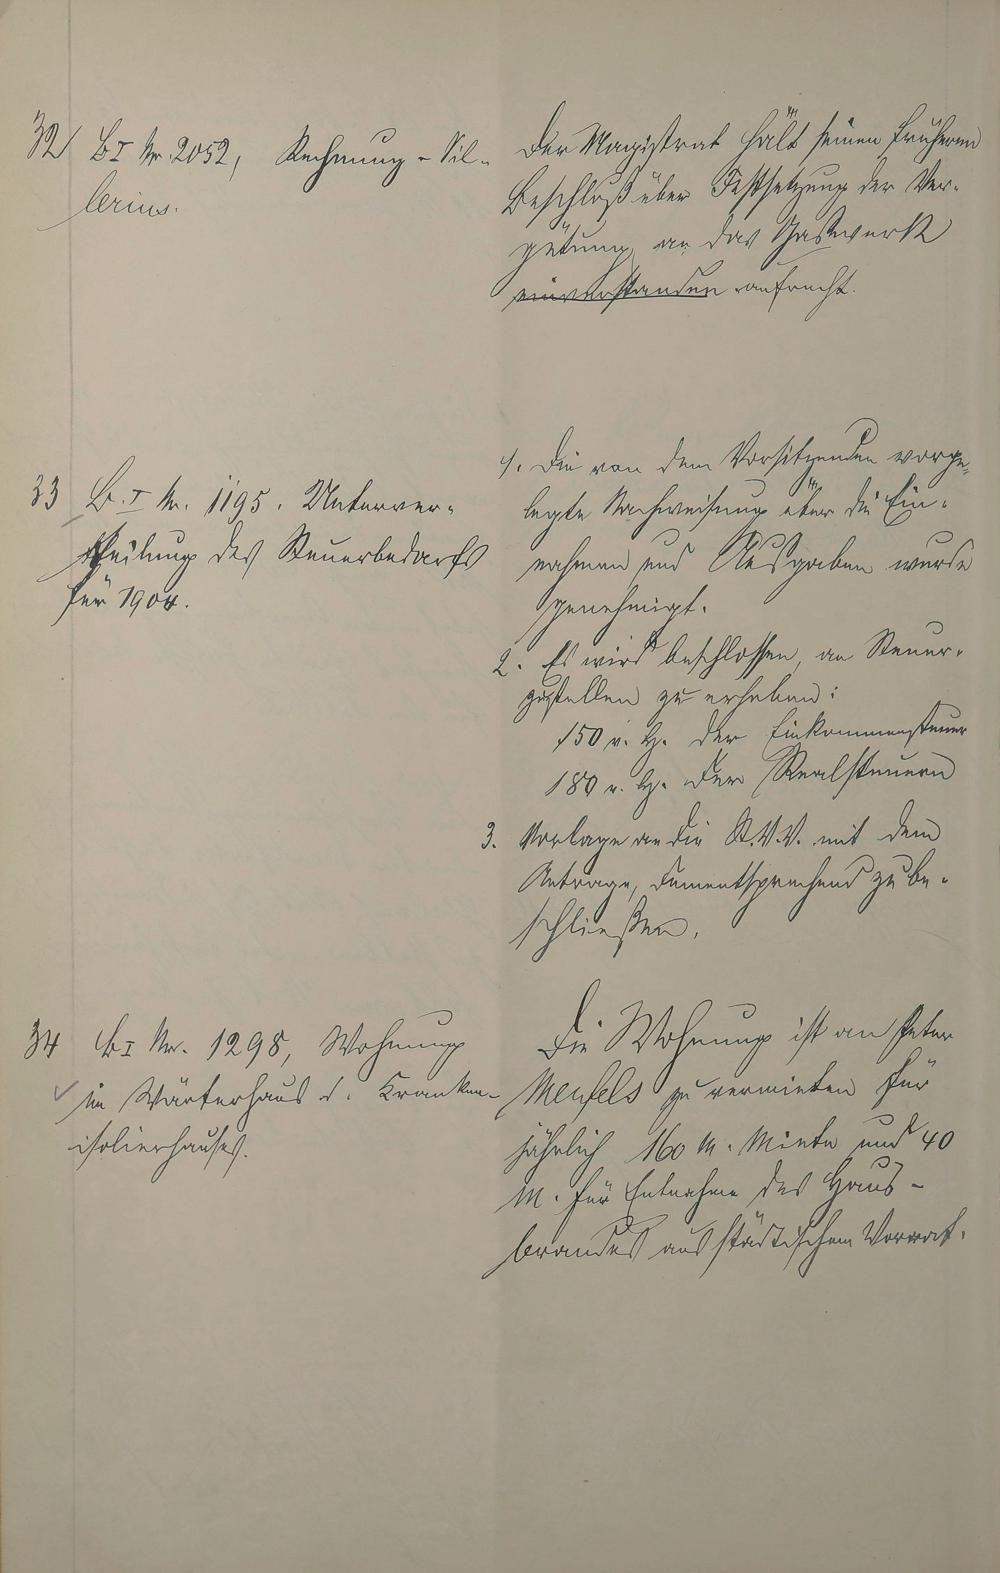 32 B I Nr. 2052, Rechnung - Sil-
lerius.
Der Magistrat hält seinen früheren
Beschluß über Festsetzung der Ver-
gütung an das Gaswerk
einverstanden aufrecht.
33 B. I Nr. 1195. Unterver-
theilung des Steuerbedarfs
für 1904.
1. Die von dem Vorsitzenden vorge-
legte Nachweisung über die Ein-
nahmen und Ausgaben wurde
genehmigt.
2. Es wird beschlossen, an Steuer-
zu erheben:
150 v. H. der Einkommensteuer
180 v. H. der Realsteuern
3. Vorlage an die St.V.V. mit dem
Antrage, dementsprechend zu be-
schließen.
34 B I Nr. 1298, Wohnung
im Wärterhaus d. Kranken-
isolierhauses.
Die Wohnung ist an Peter
Meufels zu vermieten für
jährlich 160 M. Miete und 40
M. für Entnahme des Haus-
brandes aus städtischem Vorrat.